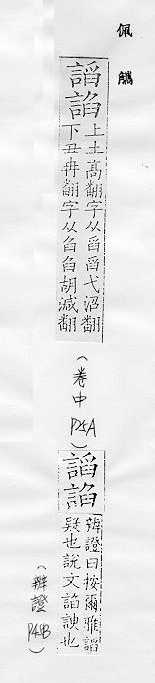 佩觿
謟諂
上土高翻字从舀舀弋沼翻
下丑冉翻字从臽臽胡減翻
（卷中
謟諂
辨證曰按爾雅謟
疑也說文諂諛也
（辨證